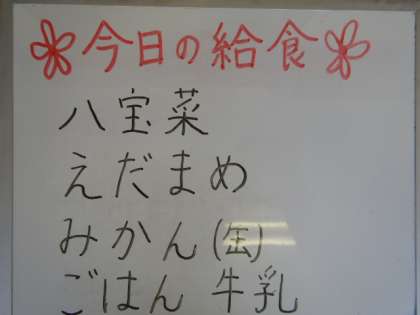 今日の給食
八宝菜
えだまめ
みかん(缶)
ごはん 牛乳